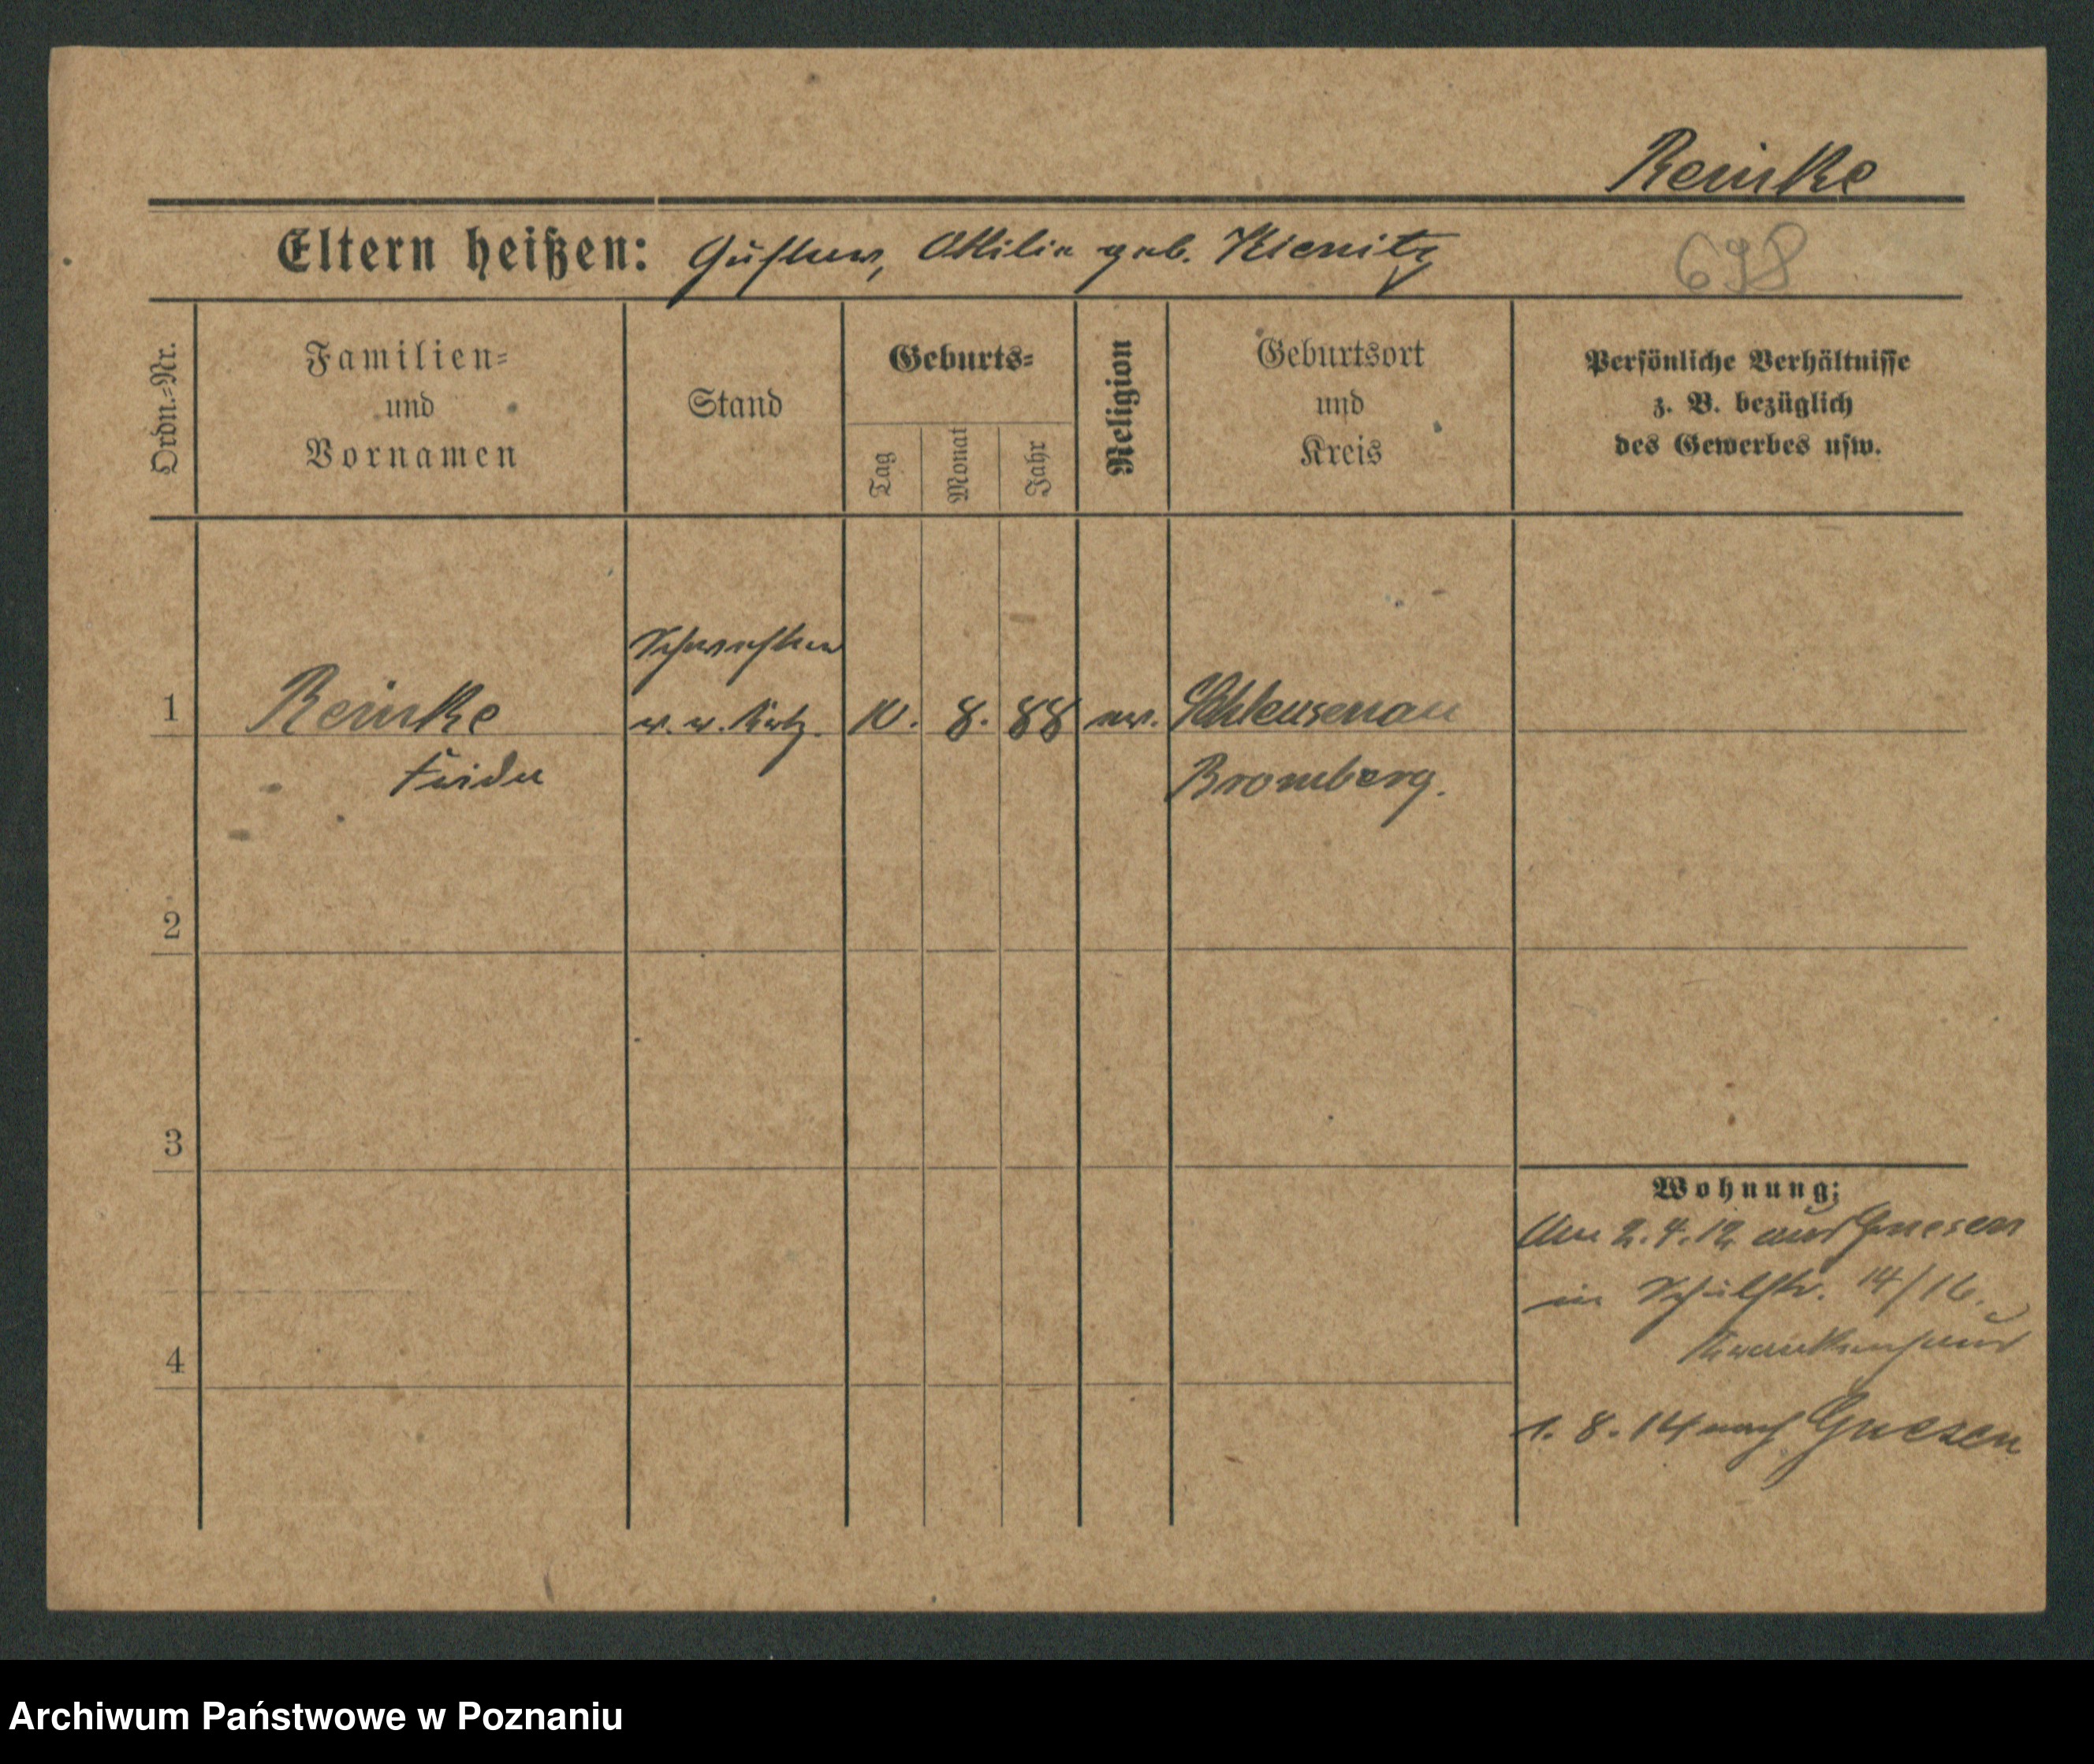 Reinke
Eltern heißen: Gustav, Ottilie geb. Kienitz
698
Ordn.=Nr.
Familien=
und
Vornamen
Stand
Geburts=
Tag
Monat
Jahr
Religion
Geburtsort
und
Kreis
Persönliche Verhältnisse
z. B. bezüglich
des Gewerbes usw.
Schwester
1 Reinke 10. 8. 88 ev. Schleusenau
Frieda Bromberg.
2
3
4
Wohnung:
Am 2.4.12 aus Gnesen
in Schulstr. 14/16.
Krankenhaus
1. 8. 14 nach Gnesen
Archiwum Państwowe w Poznaniu